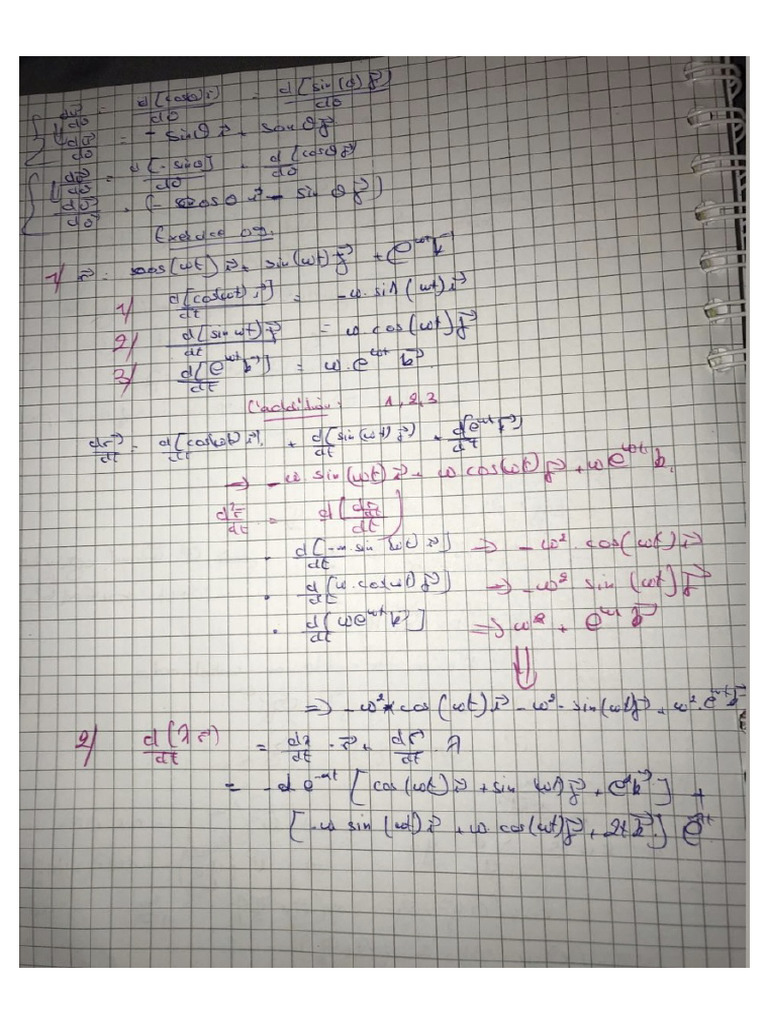 d[cosθ i⃗]/dθ = d[sin(θ) j⃗]/dθ
= - sinθ i⃗ +
= d[- sinθ]/dθ + d[cosθ j⃗]/dθ
(- cosθ i⃗ - sin θ j⃗)
Exercice 09:
1/ r⃗ = cos(ωt) i⃗ + sin(ωt) j⃗ + e^ωt k⃗
1/ d[cos(ωt) i⃗]/dt = -ω. sin(ωt) i⃗
2/ d[sin ωt) j⃗/dt = ω cos(ωt) j⃗
3/ d[e^ωt k⃗]/dt = ω. e^ωt k⃗
L'addition: 1, 2, 3
dr⃗/dt = d[cos(ωt) i⃗]/dt + d[sin(ωt) j⃗)/dt + d[e^ωt k⃗)/dt
→ -ω. sin(ωt) i⃗ + ω cos(ωt) j⃗ + ω e^ωt k⃗.
d²r⃗/dt = d[dr⃗/dt]
• d[-ω. sin (ωt) i⃗]/dt ⇒ -ω². cos(ωt) i⃗
• d[ω. cos(ωt) j⃗]/dt ⇒ -ω² sin (ωt) j⃗
• d[ωe^ωt k⃗]/dt ⇒ ω² + e^ωt k⃗
⇓
⇒ -ω² cos(ωt) i⃗ - ω² - sin(ωt) j⃗ + ω². e^ωt k⃗
2/ d(λ r⃗)/dt = dλ/dt · r⃗ + dr⃗/dt · λ
= -α e^-αt [cos(ωt) i⃗ + sin (ωt) j⃗ + k⃗] +
[-ω sin(ωt) i⃗ + ω. cos(ωt) j⃗ + 2t k⃗]